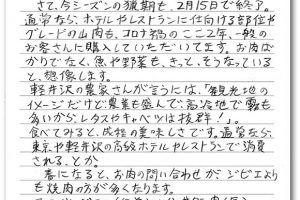 さて、今シーズンの猟期も、2月15日で終了。
通常なら、ホテルやレストランに仕向ける部位や
グレードの山肉も、コロナ禍のここ2年、一般の
お客さんに購入していただいてます。お肉ば
かりでなく、魚や野菜も、きっと、そうなっている
と、想像します。
軽井沢の農家さんが言うには、「観光地の
イメージだけど農業も盛んで高冷地で霧も
多いから、レタスやキャベツは抜群!」。
食べてみると、成程の美味しさです。通常なら、
東京や軽井沢の高級ホテルやレストランで消費
される、とか。
春になると、お肉の問い合わせが、ジビエより
も焼肉の方が多くなります。